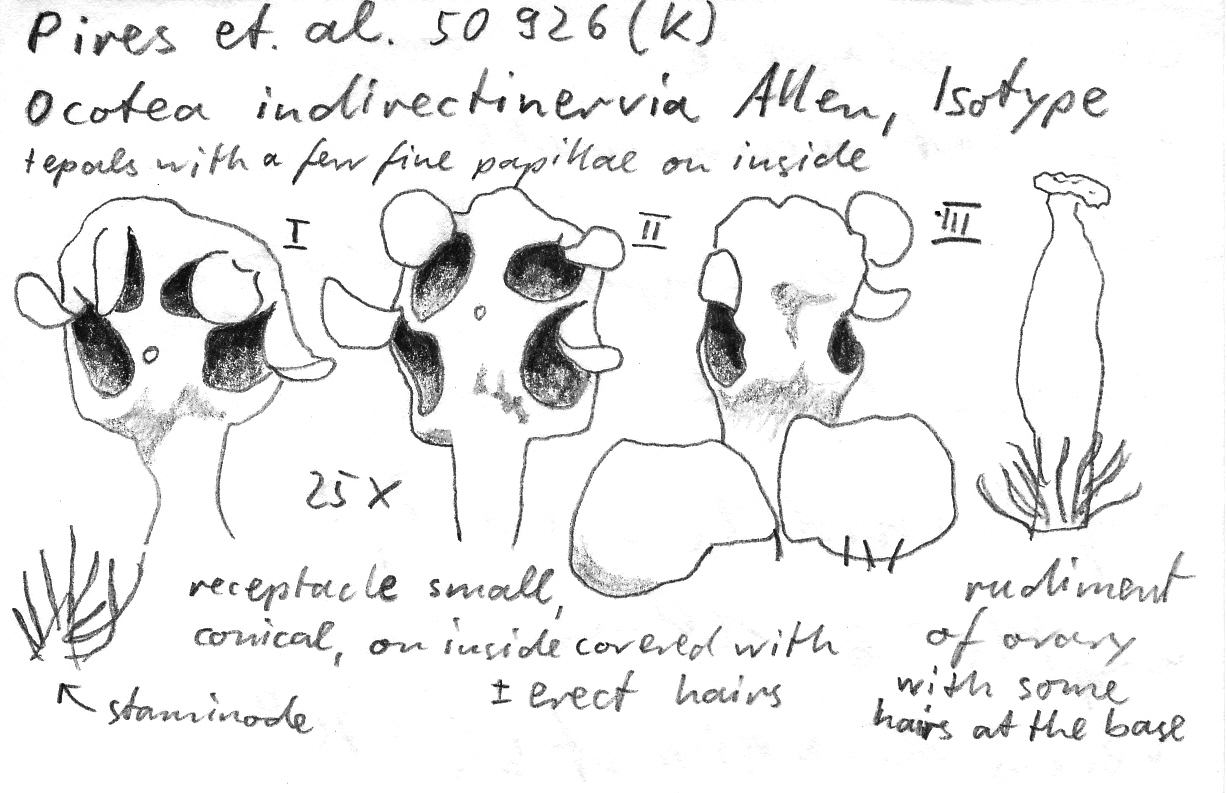 Pires et. al. 50 926 (K)
Ocotea indirectinervia Allen, Isotype
tepals with a few fine papillae on inside
I
II
III
25 X
receptacle small,
conical, on inside covered with
± erect hairs
staminode
rudiment
of ovary
with some
hairs at the base